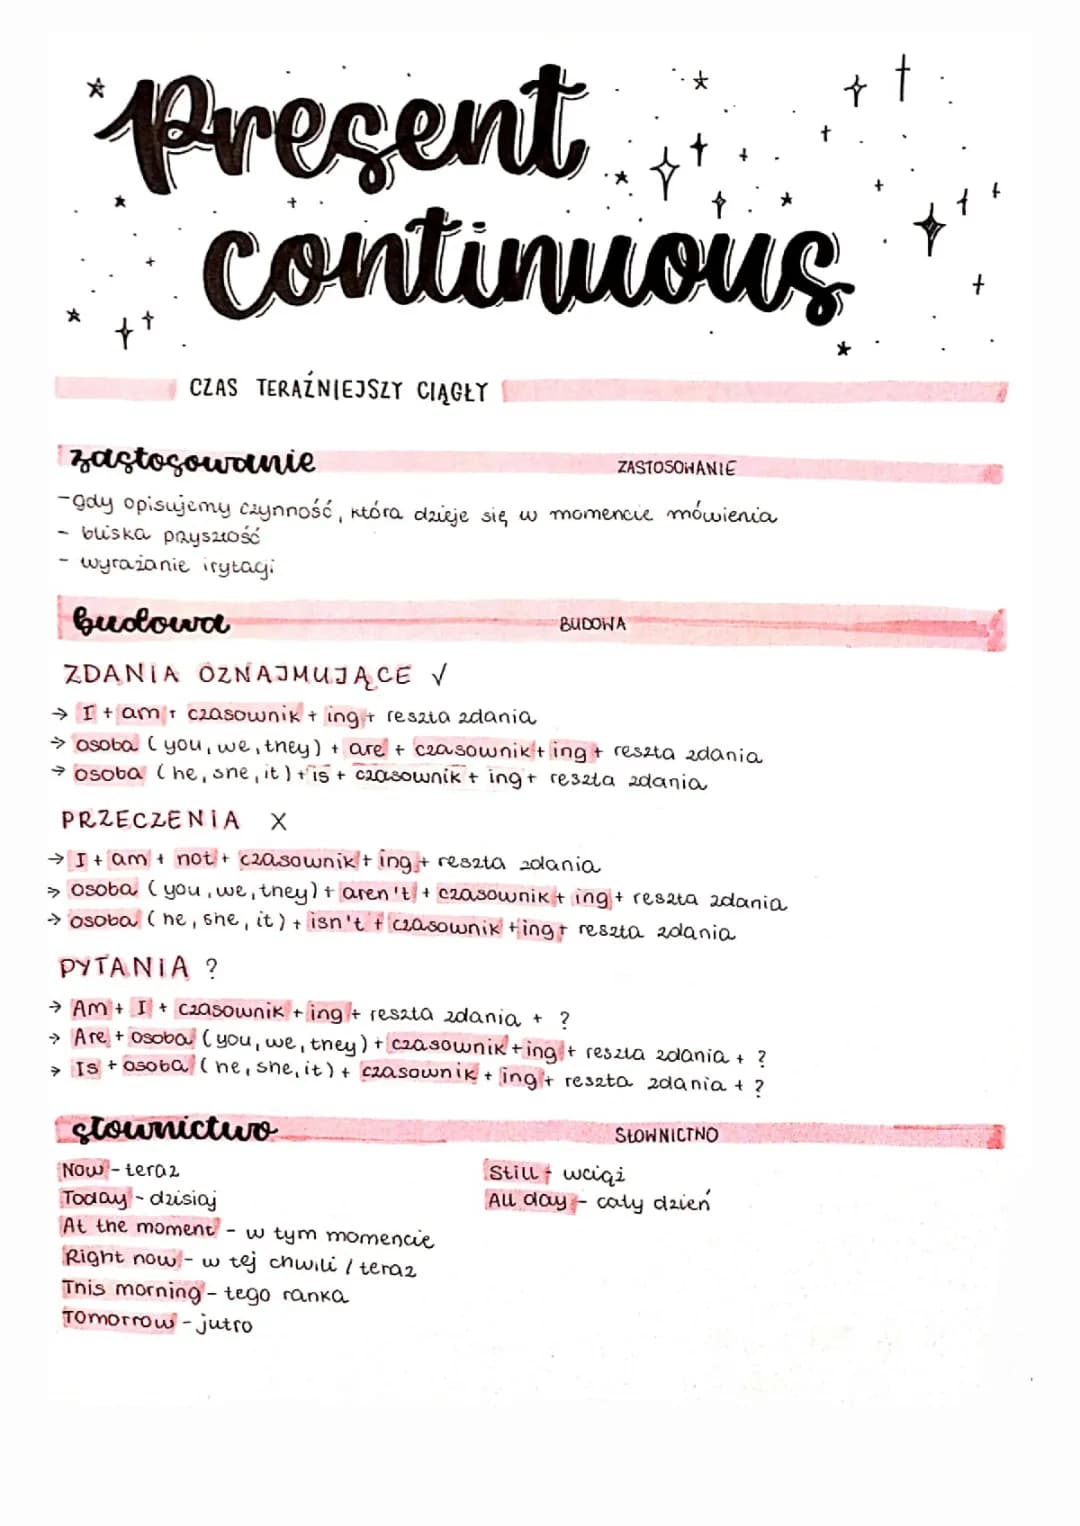 Present
continuous
CZAS TERAŹNIEJSZY CIĄGŁY
zastosowanie ZASTOSOWANIE
-gdy opisujemy czynność, która dzieje się w momencie mówienia
- bliska przyszłość
- wyrażanie irytacji
budowa BUDOWA
ZDANIA OZNAJMUJĄCE ✓
→ I + am + czasownik + ing + reszta zdania
→ osoba (you, we, they) + are + czasownik + ing + reszta zdania
→ osoba (he, she, it) + is + czasownik + ing + reszta zdania
PRZECZENIA X
→ I + am + not + czasownik + ing + reszta zdania
→ osoba (you, we, they) + aren't + czasownik + ing + reszta zdania
→ osoba (he, she, it) + isn't + czasownik + ing + reszta zdania
PYTANIA ?
→ Am + I + czasownik + ing + reszta zdania + ?
→ Are + osoba (you, we, they) + czasownik + ing + reszta zdania + ?
→ Is + osoba (he, she, it) + czasownik + ing + reszta zdania + ?
słownictwo SŁOWNICTWO
Now - teraz
Today - dzisiaj
At the moment - w tym momencie
Right now - w tej chwili / teraz
This morning - tego ranka
Tomorrow - jutro
Still - wciąż
All day - cały dzień